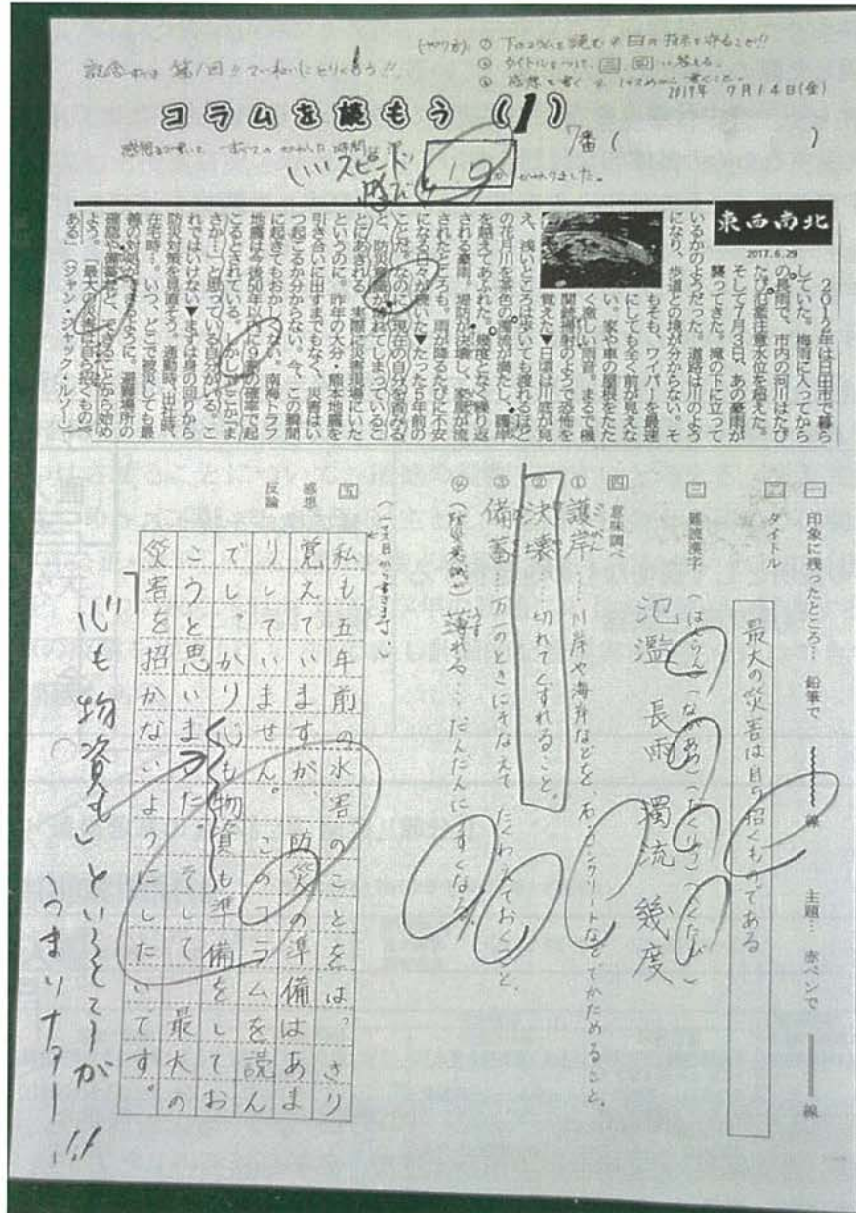 (やり方) ① 下のコラムを読む
② タイトルをつけて、三、四に答える。
③ 感想を書く
記念すべき 第1回!!
2017年 7月14日(金)
コラムを読もう (1)
7番 ( )
いいスピード
感だ
かかりました。
東西南北
2017.6.29
2012年は日田市で暮ら
していた。梅雨に入ってから
の長雨で、市内の河川はたび
たび氾濫注意水位を超えた。
そして7月3日、あの豪雨が
襲ってきた。滝の下に立って
いるかのようだった。道路は川のよう
になり、歩道との境が分からない。そ
もそも、ワイパーを最速
にしても全く前が見えな
い。家や車の屋根をたた
く激しい雨音。まるで機
関銃掃射のようで恐怖を
覚えた▼日頃は川底が見
え、浅いところは歩いても渡れるほど
の花月川を茶色の濁流が満たし、護岸
を越えてあふれた。幾度となく繰り返
される豪雨。堤防が決壊し、家屋が流
されたところも。雨が降るたびに不安
になる日々が続いた▼たった5年前の
ことだ。なのに、現在の自分を省みる
と、防災意識が薄れてしまっているこ
とにあきれる。実際に災害現場にいた
というのに。昨年の大分・熊本地震を
引き合いに出すまでもなく、災害はい
つ起こるか分からない。今、この瞬間
に起きてもおかしくない。南海トラフ
地震は今後50年以内に9割の確率で起
こるとされている。しかし、どこか「ま
さか…」と思っている自分がいる。こ
れではいけない▼まずは身の回りから
防災対策を見直そう。通勤時、出社時、
在宅時…。いつ、どこで被災しても最
善の対応ができるように。避難場所の
確認や備蓄など、できることから始め
よう。「最大の災害は自ら招くもので
ある」(ジャン・ジャック・ルソー)
一 印象に残ったところ… 鉛筆で 線 主題… 赤ペンで 線
二 タイトル
最大の災害は自ら招くものである
三 難読漢字 (はんらん) (ながあめ) (だくりゅう) (いくたび)
氾濫 長雨 濁流 幾度
四 意味調べ
① 護岸…川岸や海岸などを、石・コンクリートなどでかためること。
② 決壊…切れてくずれること。
③ 備蓄…万一のときにそなえてたくわえておくこと。
④ (防災意識が) 薄れる…だんだんにすくなる。
五 感想
反論
(一マス目から書きます。)
私も五年前の水害のことをはっきり
覚えていますが、防災の準備はあま
りしていません。このコラムを読ん
でしっかり心も物資も準備をしてお
こうと思いました。そして最大の
災害を招かないようにしたいです。
「心も物資も」というところが
うまいナァー!!